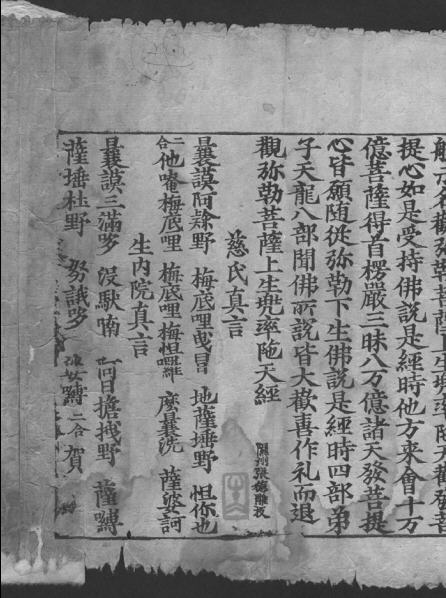 般若名觀弥勒菩薩上生兜率陁天觀發菩
提心如是受持佛說是經時他方來會十万
億菩薩得首楞嚴三昧八万億諸天發菩提
心皆願随從弥勒下生佛說是經時四部弟
子天龍八部聞佛所說皆大歡喜作礼而退
觀弥勒菩薩上生兜率陁天經
慈氏真言
曩謨阿哆野 梅底哩曳冒 地薩埵野 怛你也
二合他唵梅底哩 梅底哩梅怛囉 麼曩洗 薩婆訶
生內院真言
曩謨三滿哆 沒馱喃 阿擔拽野 薩嚩
薩埵杜野 努誐哆 嚩二合賀